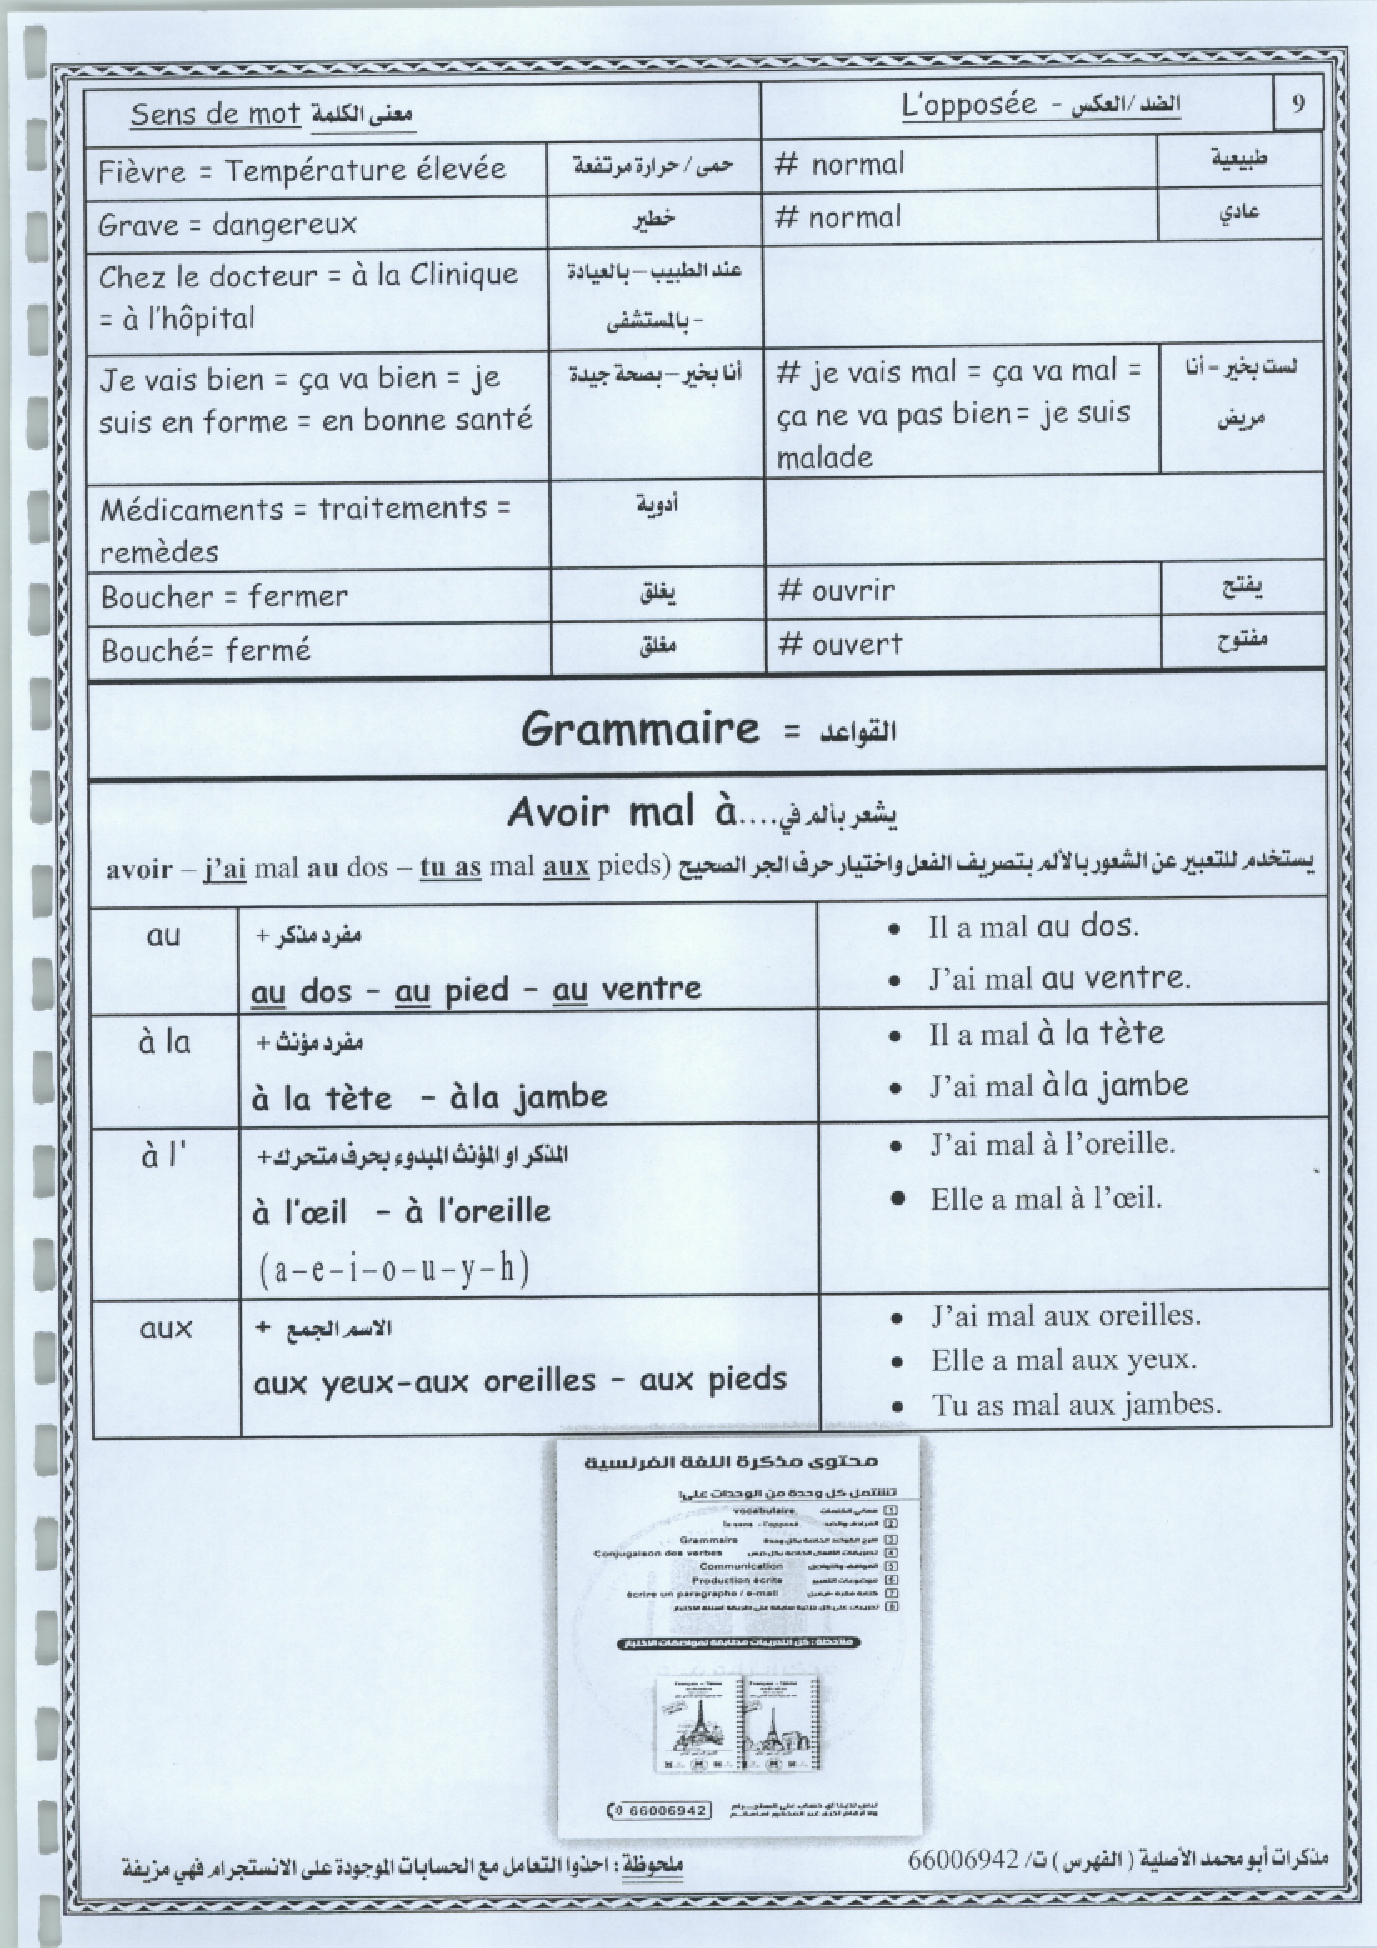 Sens de mot معنى الكلمة
L'opposée - الضد /العكس
9
Fièvre = Température élevée
حمى / حرارة مرتفعة
# normal
طبيعية
Grave = dangereux
خطير
# normal
عادي
Chez le docteur = à la Clinique
= à l'hôpital
عند الطبيب – بالعيادة
- بالمستشفى
Je vais bien = ça va bien = je
suis en forme = en bonne santé
أنا بخير – بصحة جيدة
# je vais mal = ça va mal =
ça ne va pas bien = je suis
malade
لست بخير – أنا
مريض
Médicaments = traitements =
remèdes
أدوية
Boucher = fermer
يغلق
# ouvrir
يفتح
Bouché= fermé
مغلق
# ouvert
مفتوح
Grammaire = القواعد
Avoir mal à....يشعر بألم في
يستخدم للتعبير عن الشعور بالألم بتصريف الفعل واختيار حرف الجر الصحيح (avoir – j'ai mal au dos – tu as mal aux pieds
au
+ مفرد مذكر
au dos - au pied - au ventre
• Il a mal au dos.
• J'ai mal au ventre.
à la
+ مفرد مؤنث
à la tète - àla jambe
• Il a mal à la tète
• J'ai mal àla jambe
à l'
+المذكر او المؤنث المبدوء بحرف متحرك
à l'œil - à l'oreille
(a–e–i–o–u–y–h)
• J'ai mal à l'oreille.
• Elle a mal à l'œil.
aux
+ الاسم الجمع
aux yeux-aux oreilles - aux pieds
• J'ai mal aux oreilles.
• Elle a mal aux yeux.
• Tu as mal aux jambes.
محتوى مذكرة اللغة الفرنسية
تشتمل كل وحدة من الوحدات على:
1 معاني الكلمات vocabulaire
2 المرادف والضد le sens - l'opposé
3 شرح القواعد الخاصة بكل وحدة Grammaire
4 تصريفات الأفعال الخاصة بكل درس Conjugaison des verbes
5 Communication
6 موضوعات التعبير Production écrite
7 écrire un paragraphe / e-mail
8
ملاحظة : كل التدريبات مطابقة لمواصفات الاختبار
66006942
مذكرات أبو محمد الأصلية ( الفهرس ) ت/ 66006942
ملحوظة : احذوا التعامل مع الحسابات الموجودة على الانستجرام فهي مزيفة